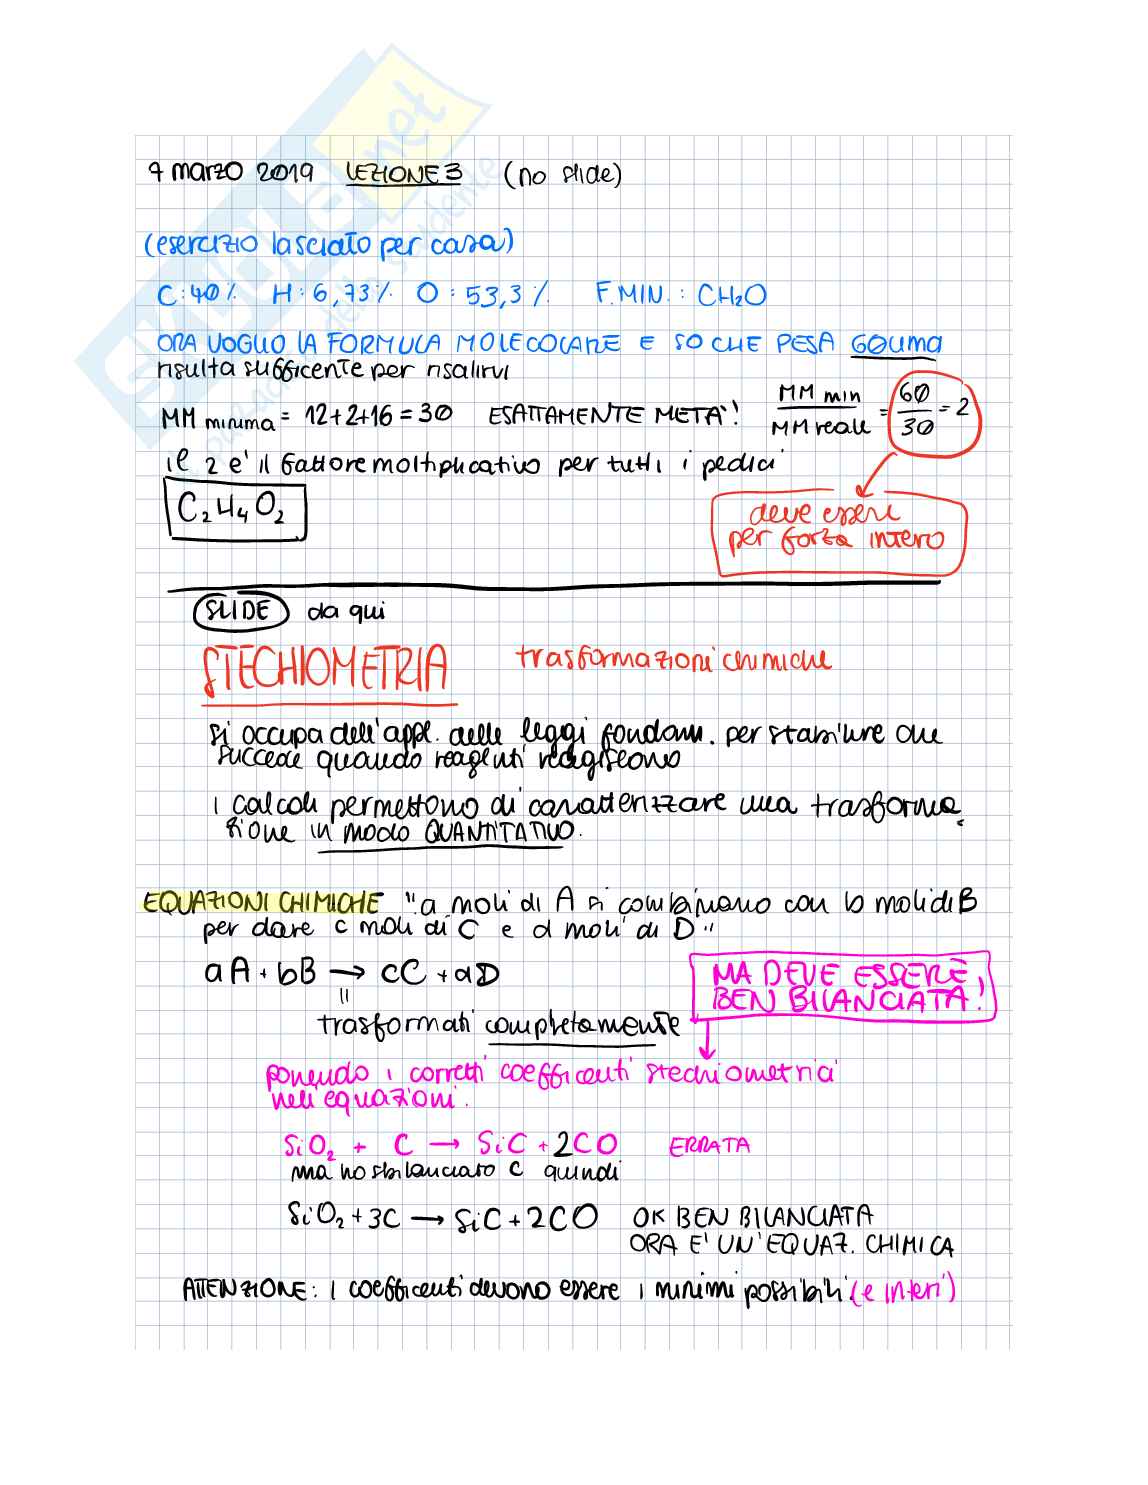 7 marzo 2019 LEZIONE 3 (no slide)
(esercizio lasciato per casa)
C: 40% H: 6,73% O: 53,3% F.MIN.: CH₂O
ORA VOGLIO LA FORMULA MOLECOLARE E SO CHE PESA 60uma
risulta sufficente per risalirvi
MM minima = 12+2+16 = 30 ESATTAMENTE METÀ! MM min / MM reale = 60/30 = 2
il 2 e' il fattore moltiplicativo per tutti i pedici
C₂H₄O₂
deve essere
per forza intero
SLIDE da qui
STECHIOMETRIA trasformazioni chimiche
si occupa dell'appl. delle leggi fondam. per stabilire che
succede quando reagenti reagiscono
i calcoli permettono di caratterizzare una trasforma
zione in modo QUANTITATIVO.
EQUAZIONI CHIMICHE "a moli di A si combinano con b moli di B
per dare c moli di C e d moli di D"
aA + bB → cC + dD
MA DEVE ESSERE
BEN BILANCIATA!
"
trasformati completamente
ponendo i corretti coefficenti stechiometrici
nell'equazioni.
SiO₂ + C → SiC + 2CO ERRATA
ma ho sbilanciato C quindi
SiO₂ + 3C → SiC + 2CO OK BEN BILANCIATA
ORA E' UN'EQUAZ. CHIMICA
ATTENZIONE: i coefficenti devono essere i minimi possibili. (e interi)
SKUOLA.net
dello studente